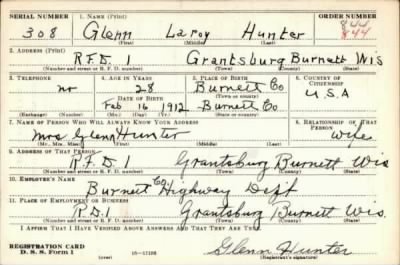 SERIAL NUMBER 1. NAME (Print) ORDER NUMBER
308 Glenn LaRoy Hunter 844
(First) (Middle) (Last) 844
2. ADDRESS (Print)
R.F.D. 1 Grantsburg Burnett Wis
(Number and street or R. F. D. number) (Town) (County) (State)
3. TELEPHONE 4. AGE IN YEARS 5. PLACE OF BIRTH 6. COUNTRY OF CITIZENSHIP
no 28 Burnett Co
(Town or county)
DATE OF BIRTH U.S.A
Feb 16 1912 Burnett Co
(Exchange) (Number) (Mo.) (Day) (Yr.) (State or country)
7. NAME OF PERSON WHO WILL ALWAYS KNOW YOUR ADDRESS 8. RELATIONSHIP OF THAT PERSON
Mrs Glenn Hunter wife
(Mr., Mrs., Miss) (First) (Middle) (Last)
9. ADDRESS OF THAT PERSON
R.F.D. 1 Grantsburg Burnett Wis
(Number and street or R. F. D. number) (Town) (County) (State)
10. EMPLOYER'S NAME
Burnett Co Highway Dept
11. PLACE OF EMPLOYMENT OR BUSINESS
R.D.1 Grantsburg Burnett Wis.
(Number and street or R. F. D. number) (Town) (County) (State)
I AFFIRM THAT I HAVE VERIFIED ABOVE ANSWERS AND THAT THEY ARE TRUE.
REGISTRATION CARD
D. S. S. Form 1 (over) Glenn Hunter
(Registrant's signature)